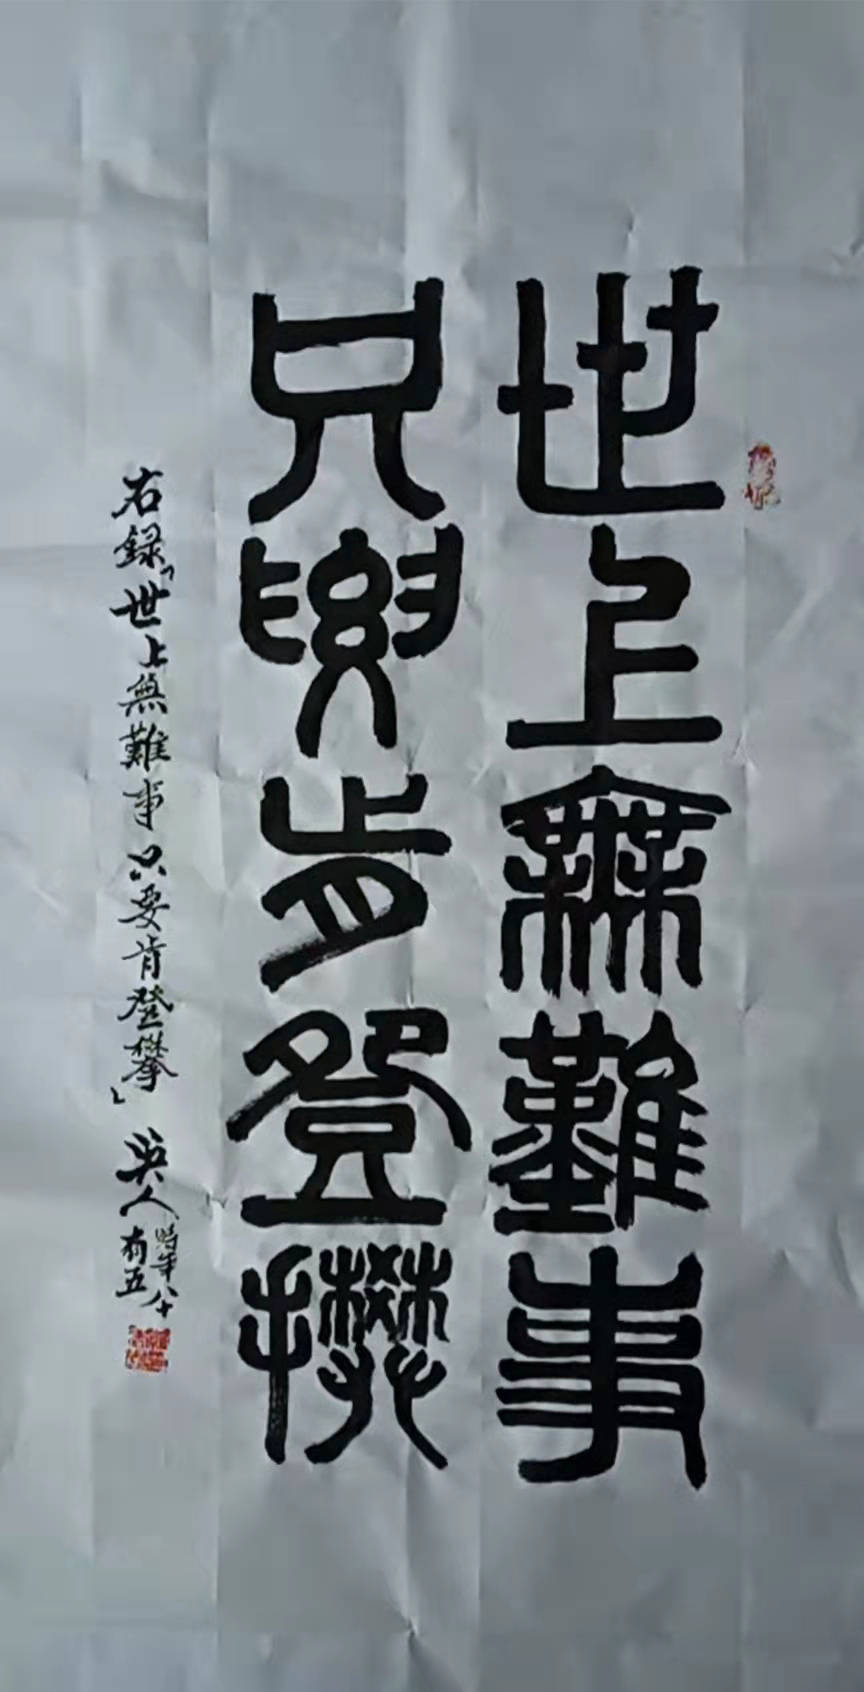 世上無難事
只要肯登攀
右録「世上無難事只要肯登攀」 英人
時年八十
有五